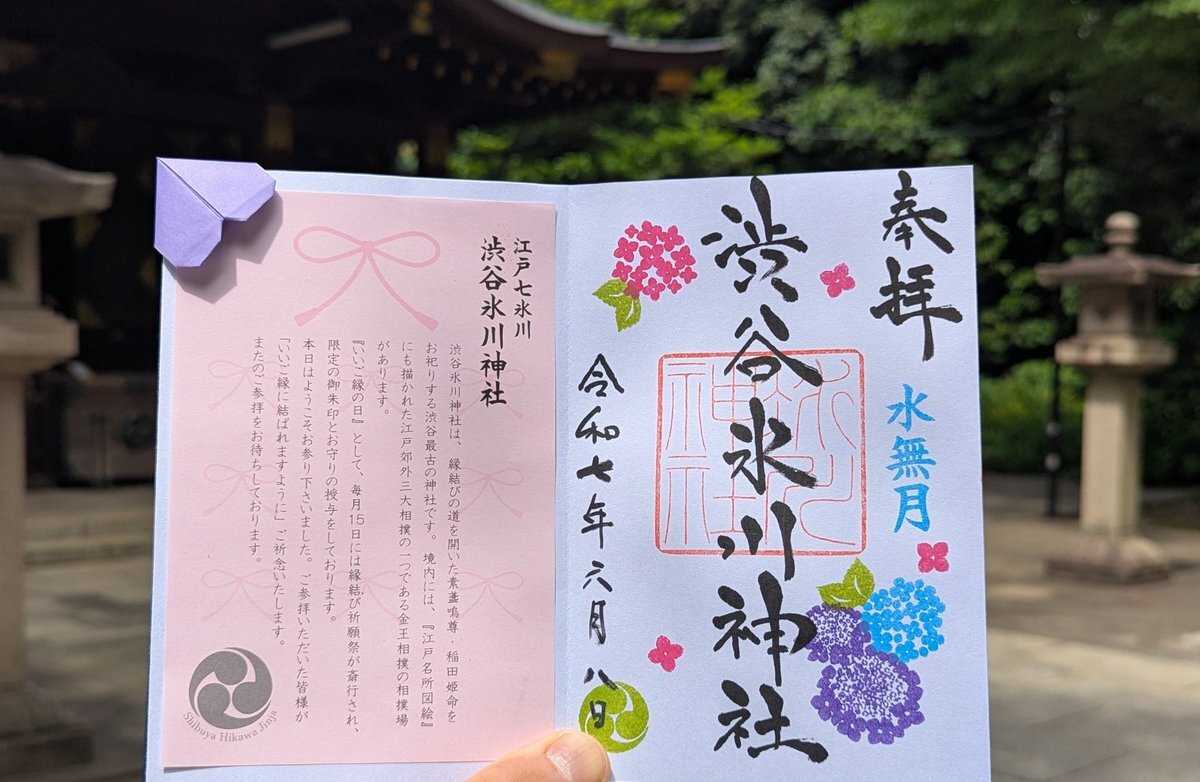 奉拝
水無月
渋谷氷川神社
令和七年六月八日
江戸七氷川
渋谷氷川神社
渋谷氷川神社は、縁結びの道を開いた素盞嗚尊・稲田姫命を
お祀りする渋谷最古の神社です。境内には、『江戸名所図絵』
にも描かれた江戸郊外三大相撲の一つである金王相撲の相撲場
があります。
『いいご縁の日』として、毎月15日には縁結び祈願祭が斎行され、
限定の御朱印とお守りの授与をしております。
本日はようこそお参り下さいました。ご参拝いただいた皆様が
「いいご縁に結ばれますように」ご祈念いたします。
またのご参拝をお待ちしております。
Shibuya Hikawa Jinja